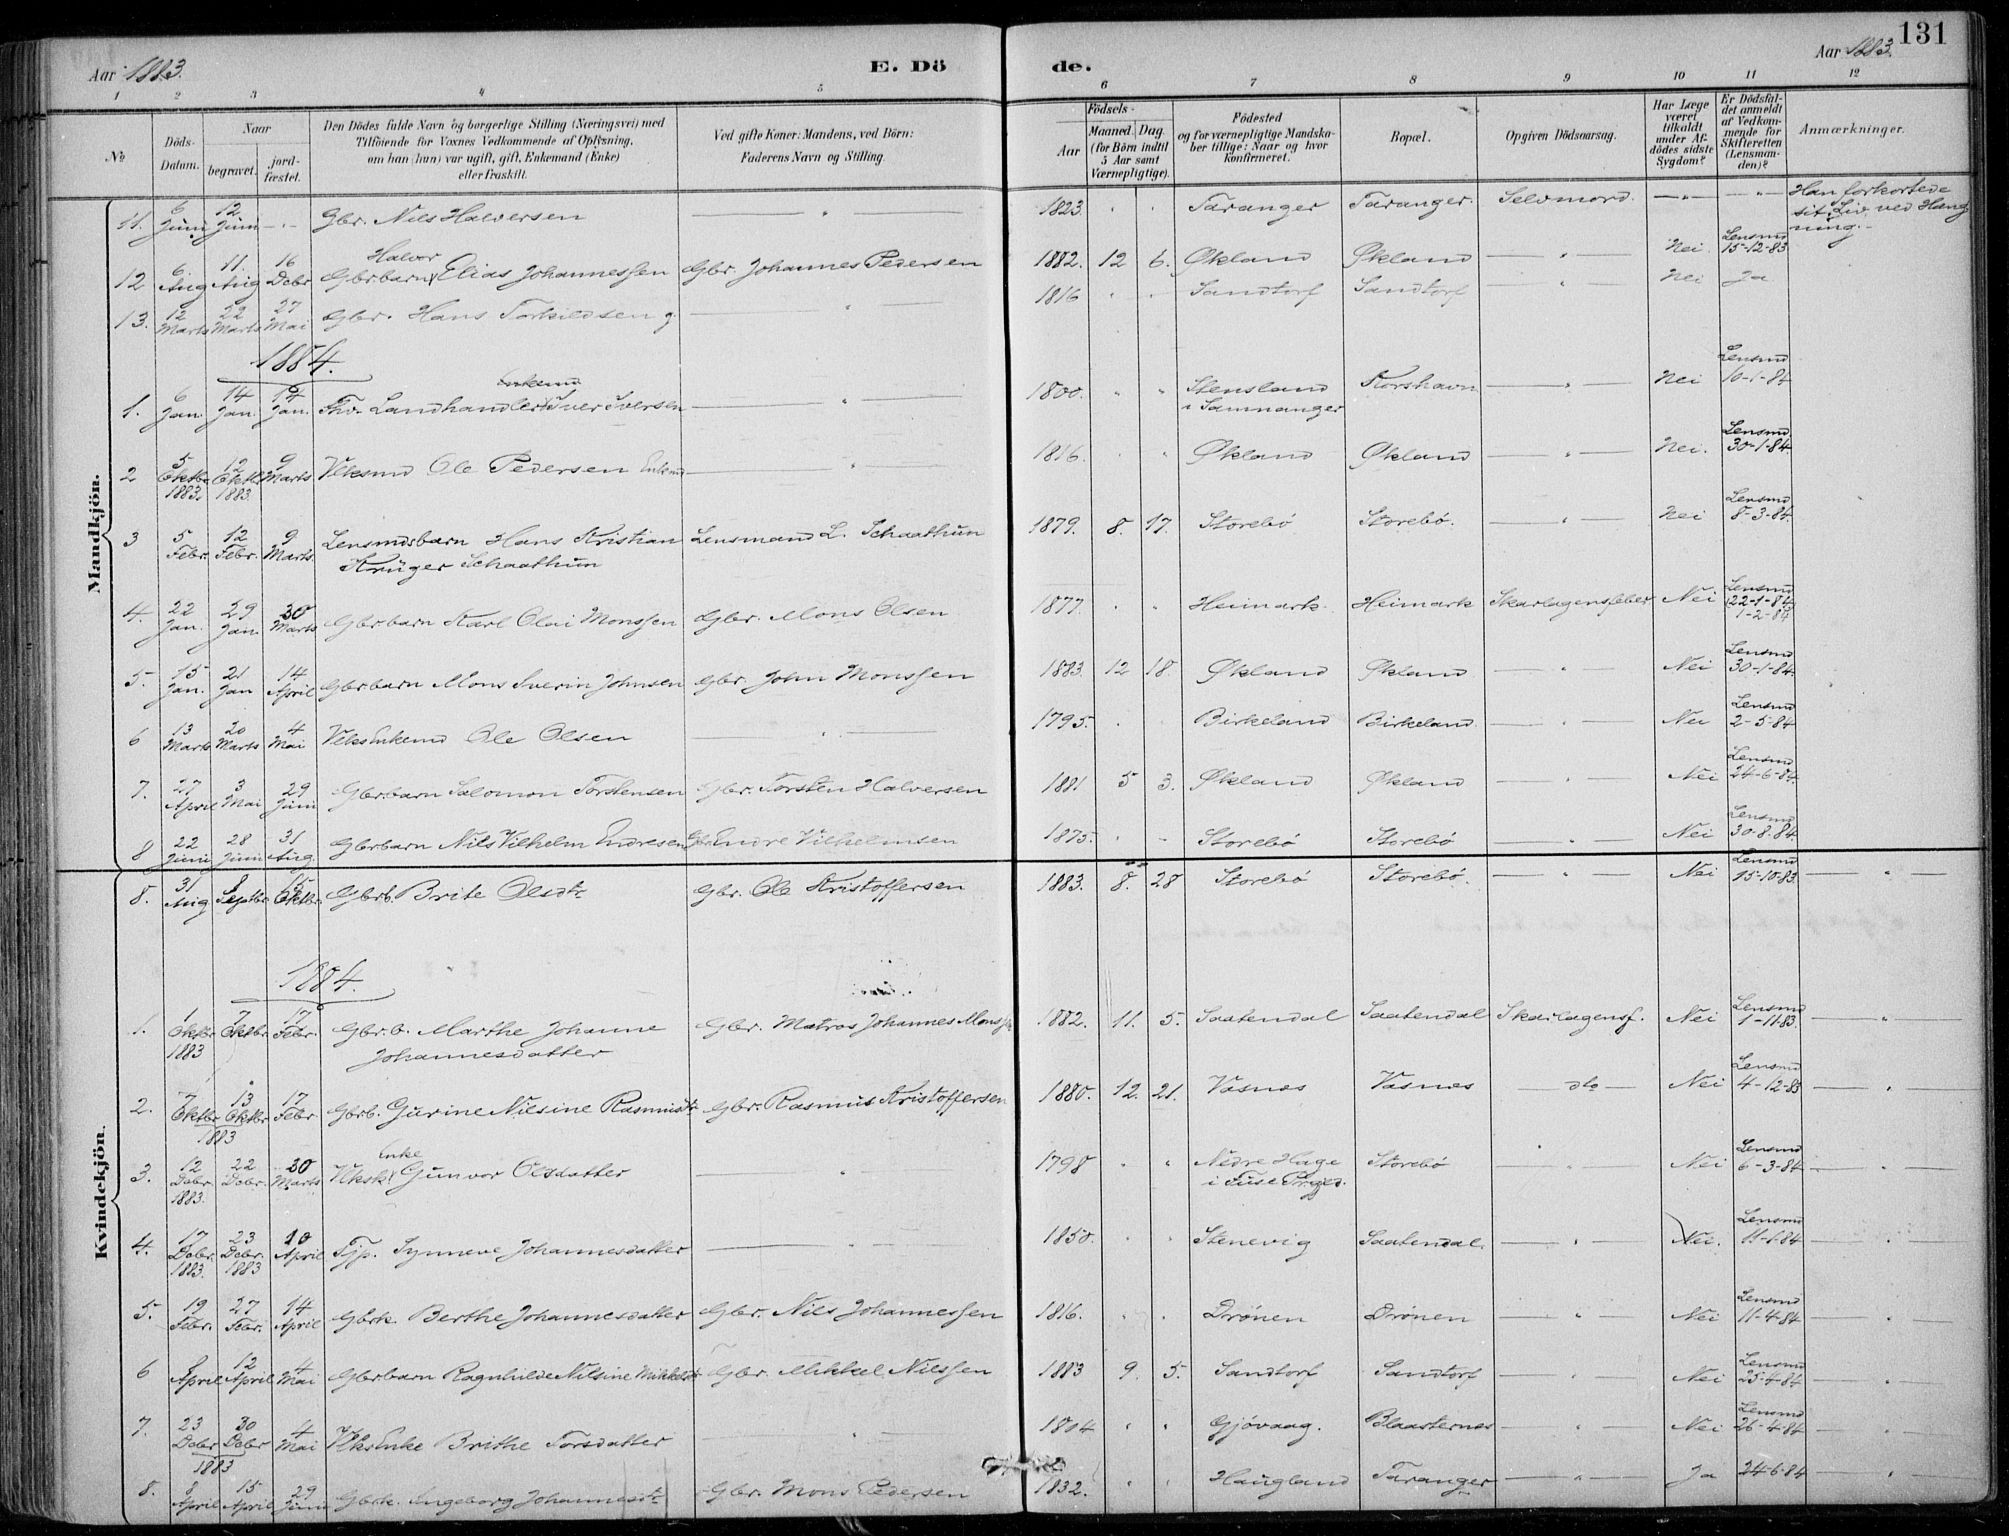 131
Aar 1883.
E. Dö
de.
Aar 1883.
1 2 3 4 5 6 7 8 9 10 11 12
№
Döds-
Datum.
Naar
begravet.
jord-
fæstet.
Den Dödes fulde Navn og borgerlige Stilling (Næringsvei) med
Tilföiende for Voxnes Vedkommende af Oplysning,
om han (hun) var ugift, gift, Enkemand (Enke)
eller fraskilt.
Ved gifte Koner: Mandens, ved Börn:
Faderens Navn og Stilling.
Födsels-
Aar
Maaned. Dag.
(for Börn indtil
5 Aar samt
Værnepligtige).
Födested
og for værnepligtige Mandska-
ber tillige: Naar og hvor
konfirmeret.
Bopæl.
Opgiven Dödsaarsag.
Har Læge
været
tilkaldt
under Af-
dödes sidste
Sygdom?
Er Dödsfal-
det anmeldt
af Vedkom-
mende for
Skifteretten
(Lensman-
den)?
Anmærkninger.
Mandkjön.
11. 6 Juni 12 Juni -"- Gbr. Nils Halversen " 1823. " " Taranger Taranger. Selvmord. -"- -"- Han forkortede
sit Liv ved Hæng
ning.
12 6 Aug 11 Aug 16 Debr Gbrbarn Halvor Elias Johannessen Gbr. Johannes Pedersen 1882. 12 6. Økland Økland " Nei Lensmd 15-12-83
13. 12 Marts 22 Marts 27 Mai Gbr. Hans Torkildsen g. " 1816 " " Sandtorf Sandtorf " Nei Ja
1884.
1. 6 Jan. 14 Jan. 14 Jan. Fhv. Landhandler Enkemd Iver Iversen " 1800. " " Stensland Korshavn " Nei Lensmd 10-1-84
i Samnanger
2 5 Oktbr 1883. 12 Oktbr 1883. 9 Marts Vlksmd Ole Pedersen Enkmd " 1816. " " Økland Økland " Nei. Lensmd 30-1-84
3 5 Febr. 12 Febr. 9 Marts. Lensmdsbarn Hans Kristian Lensmand L. Schaathun 1879. 8. 17. Storebö Storebö. " Nei Lensmd 8-3-84.
Krüger Schaathun
4. 22 Jan. 29 Jan. 30 Marts Gbrbarn Karl Olai Monssen Gbr. Mons Olsen 1877. " " Heimark Heimark Skarlagensfeber Nei Lensmd (22-1-84) 1-2-84
5. 15 Jan. 21 Jan 14 April Gbrbarn Mons Sverin Johnsen Gbr. John Monssen 1883. 12 18. Økland Økland " Nei Lensmd 30-1-84.
6 13 Marts 20 Marts 4 Mai VlksEnkemd Ole Olsen " 1795. " " Birkeland Birkeland " Nei Lensmd 2-5-84
7. 27 April 3 Mai 29 Juni Gbrbarn Salomon Torstensen Gbr. Torsten Halversen 1881 5 3. Økland Økland " Nei Lensmd 24-6-84.
8 22 Juni 28 Juni 31 Aug. Gbrbarn Nils Vilhelm Endresen Gbr. Endre Vilhelmsen 1875. - - Storebö Storebö " Nei Lensmd 30-8-84.
Kvindekjön.
8. 31 Aug 8 Septbr. 15 Oktbr. Gbrb. Brite Olsdtr Gbr. Ole Kristoffersen 1883. 8. 28 Storebö Storebö. " Nei Lensmd 15-10-83. "
1884.
1. 1 Oktbr 1883 7 Oktbr 17 Febr. Gbr.b. Marthe Johanne Gbr. Matros Johannes Monss 1882. 11. 5. Saatendal Saatendal Skarlagensf. Nei Lensmd 1-11-83. "
Johannesdatter
2. 7 Oktbr 13 Oktbr 1883 17 Febr Gbrb. Gurine Nilsine Rasmusdtr Gbr. Rasmus Kristoffersen 1880. 12. 21. Vasnes Vasnes do Nei Lensmd 4-12-83 "
3. 12 Debr. 1883. 22 Debr. 30 Marts Vlksk. Enke Gunvor Olsdatter " 1798 " " Nedre Hage Storebö " Nei Lensmd 6-3-84 "
i Fuse Prgjd.
4. 17 Debr. 1883. 23 Debr. 1883 10 April Tjp. Synneve Johannesdatter " 1850. " " Stenevig Saatendal. " Nei. Lensmd 11-1-84 "
5. 19 Febr. 27 Febr. 14 April Gbrk. Berthe Johannesdatter Gbr. Nils Johannessen 1816. " " Drönen Drönen " Nei Lensmd 11-4-84 "
6 8 April 12 April 4 Mai Gbrbarn Ragnhilde Nilsine Mikkelsdtr Gbr. Mikkel Nilssen 1883 9. 5. Sandtorf Sandtorf " Nei Lensmd 25-4-84 "
7. 23 Debr 30 Debr 1883 4 Mai VlksEnke Brithe Torsdatter " 1804 " " Gjövaag. Blaasternes " Nei Lensmd 26-4-84 "
8. 8 April 15 April 29 Juni Gbrk. Ingeborg Johannesdtr Gbr. Mons Pedersen 1832. " " Haugland Taranger " Ja 24-6-84 "